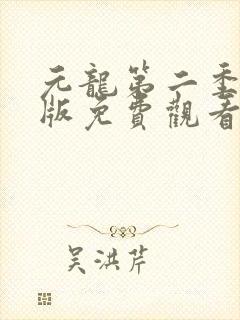 元龍第二季
版免費觀看
吴洪芹